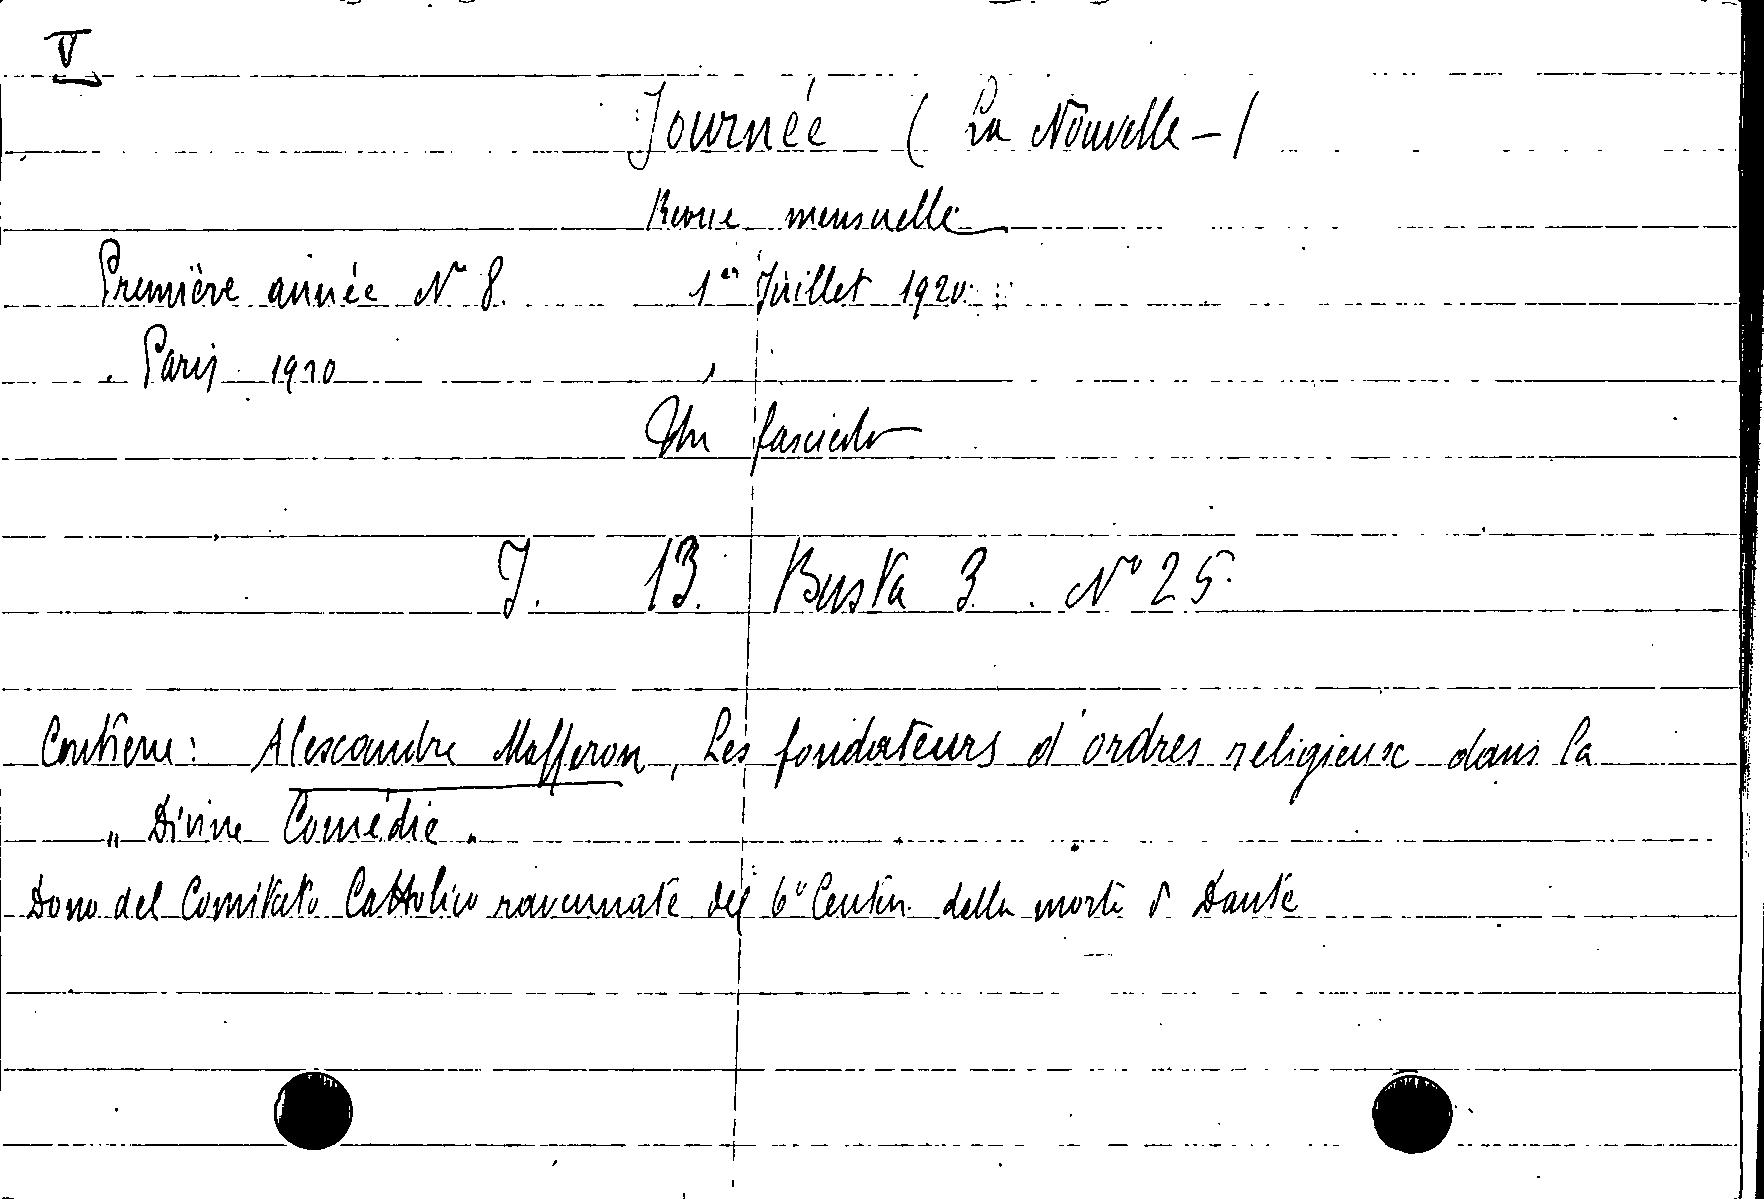 V
Journée ( La Nouvelle - )
Revue mensuelle
Première année N° 8. 1er Juillet 1920.
Paris 1920
Un fascicolo
J. 13. Busta 3. N° 25.
Contiene: Alexandre Masseron, Les fondateurs d'ordres religieux dans la
„ Divine Comédie „
Dono del Comitato Cattolico ravennate del 6° Centen. della morte d. Dante